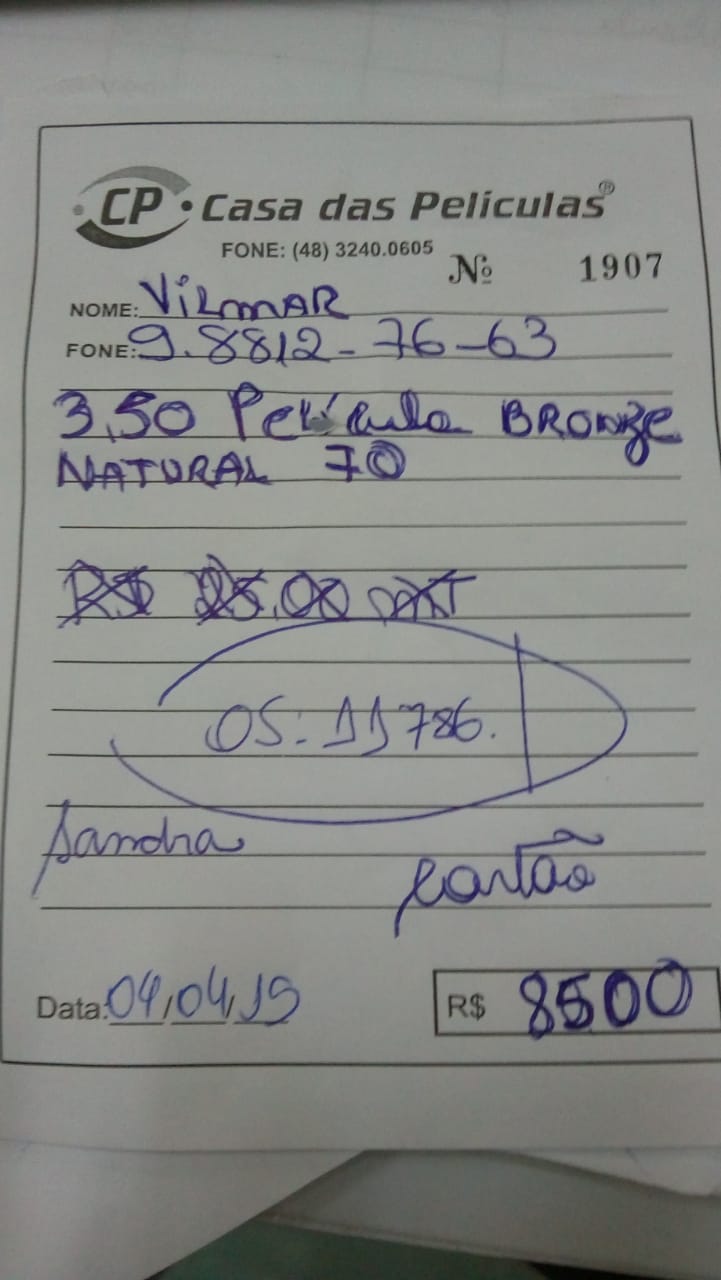 CP • Casa das Películas®
FONE: (48) 3240.0605 Nº 1907
NOME: VILMAR
FONE: 9.8812-76-63
3,50 Película BRONZE
NATURAL 70
R$ 25,00
OS: 11786.
Sandra
Cartão
Data: 04/04/19 R$ 8500